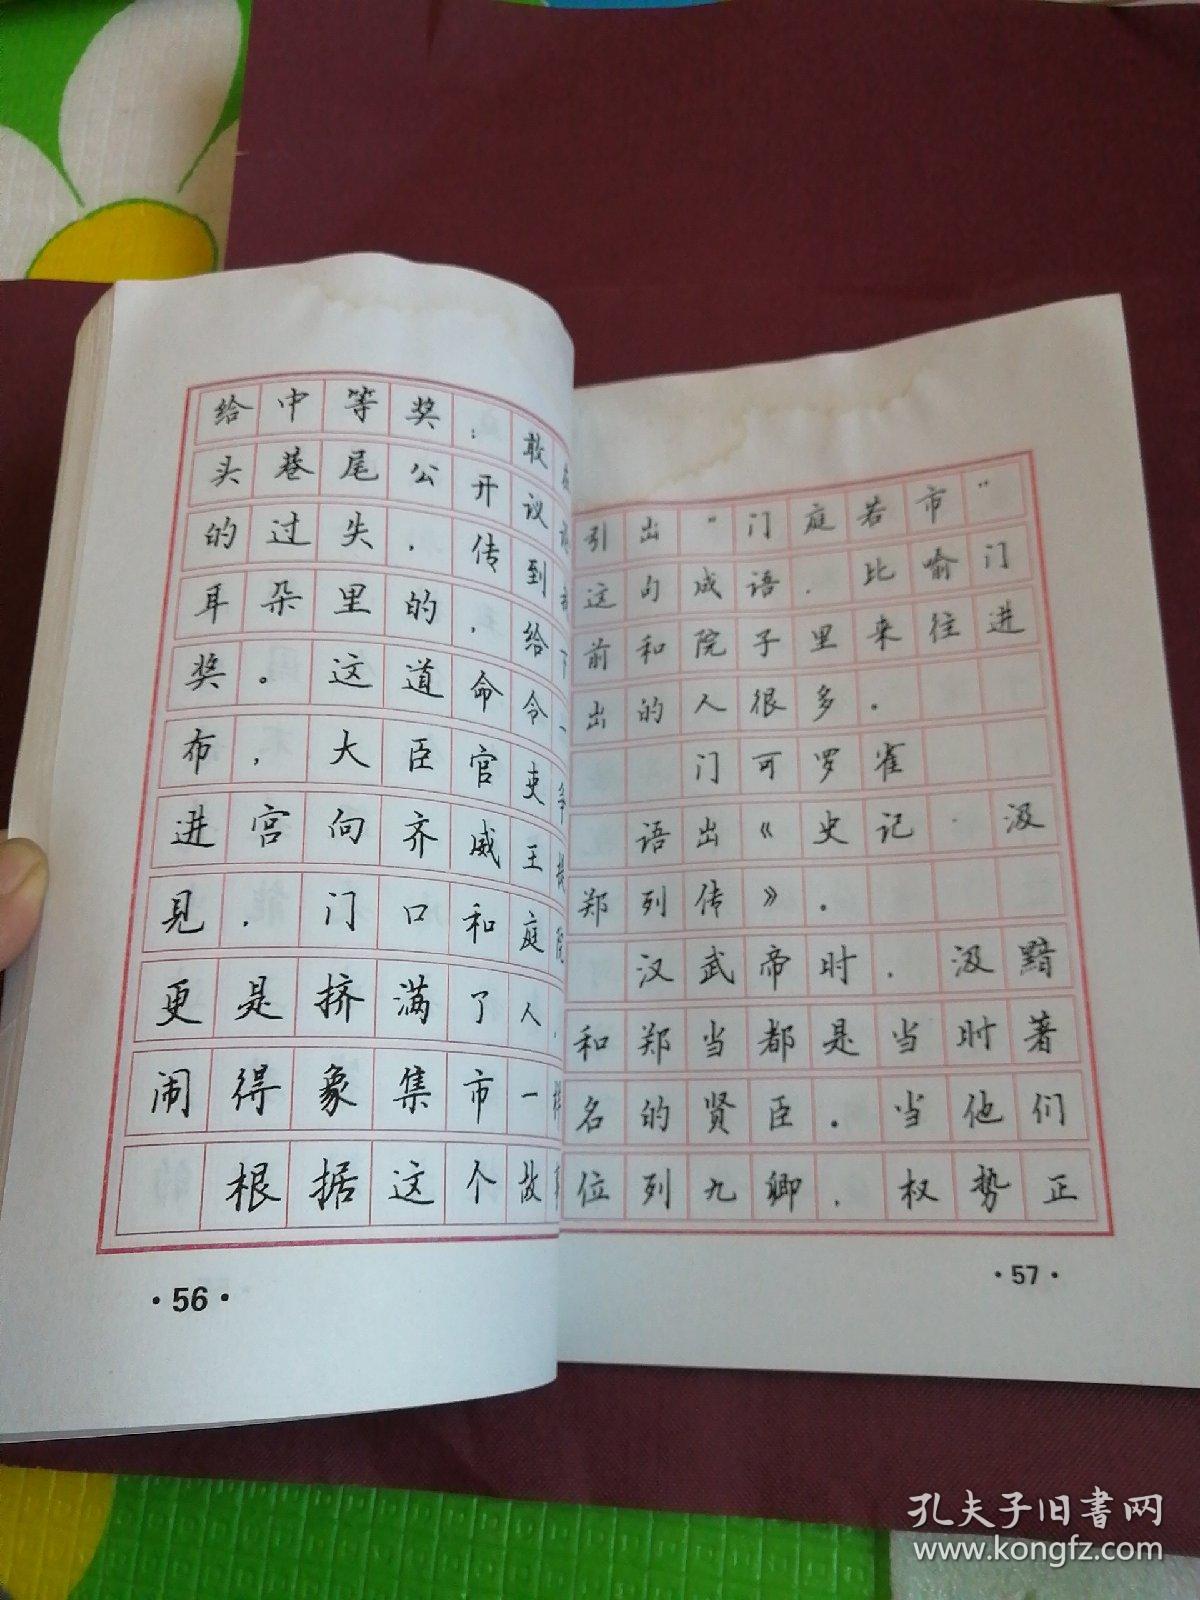 给中等奖；敢在
头巷尾公开议
的过失，传到
耳朵里的，给下
奖。这道命令一
布，大臣官吏争
进宫向齐威王
见，门口和庭院
更是挤满了人，
闹得象集市一样
根据这个故事
·56·
引出“门庭若市”
这句成语，比喻门
前和院子里来往进
出的人很多。
门可罗雀
语出《史记·汲
郑列传》。
汉武帝时，汲黯
和郑当都是当时著
名的贤臣。当他们
位列九卿，权势正
·57·
孔夫子旧书网
www.kongfz.com